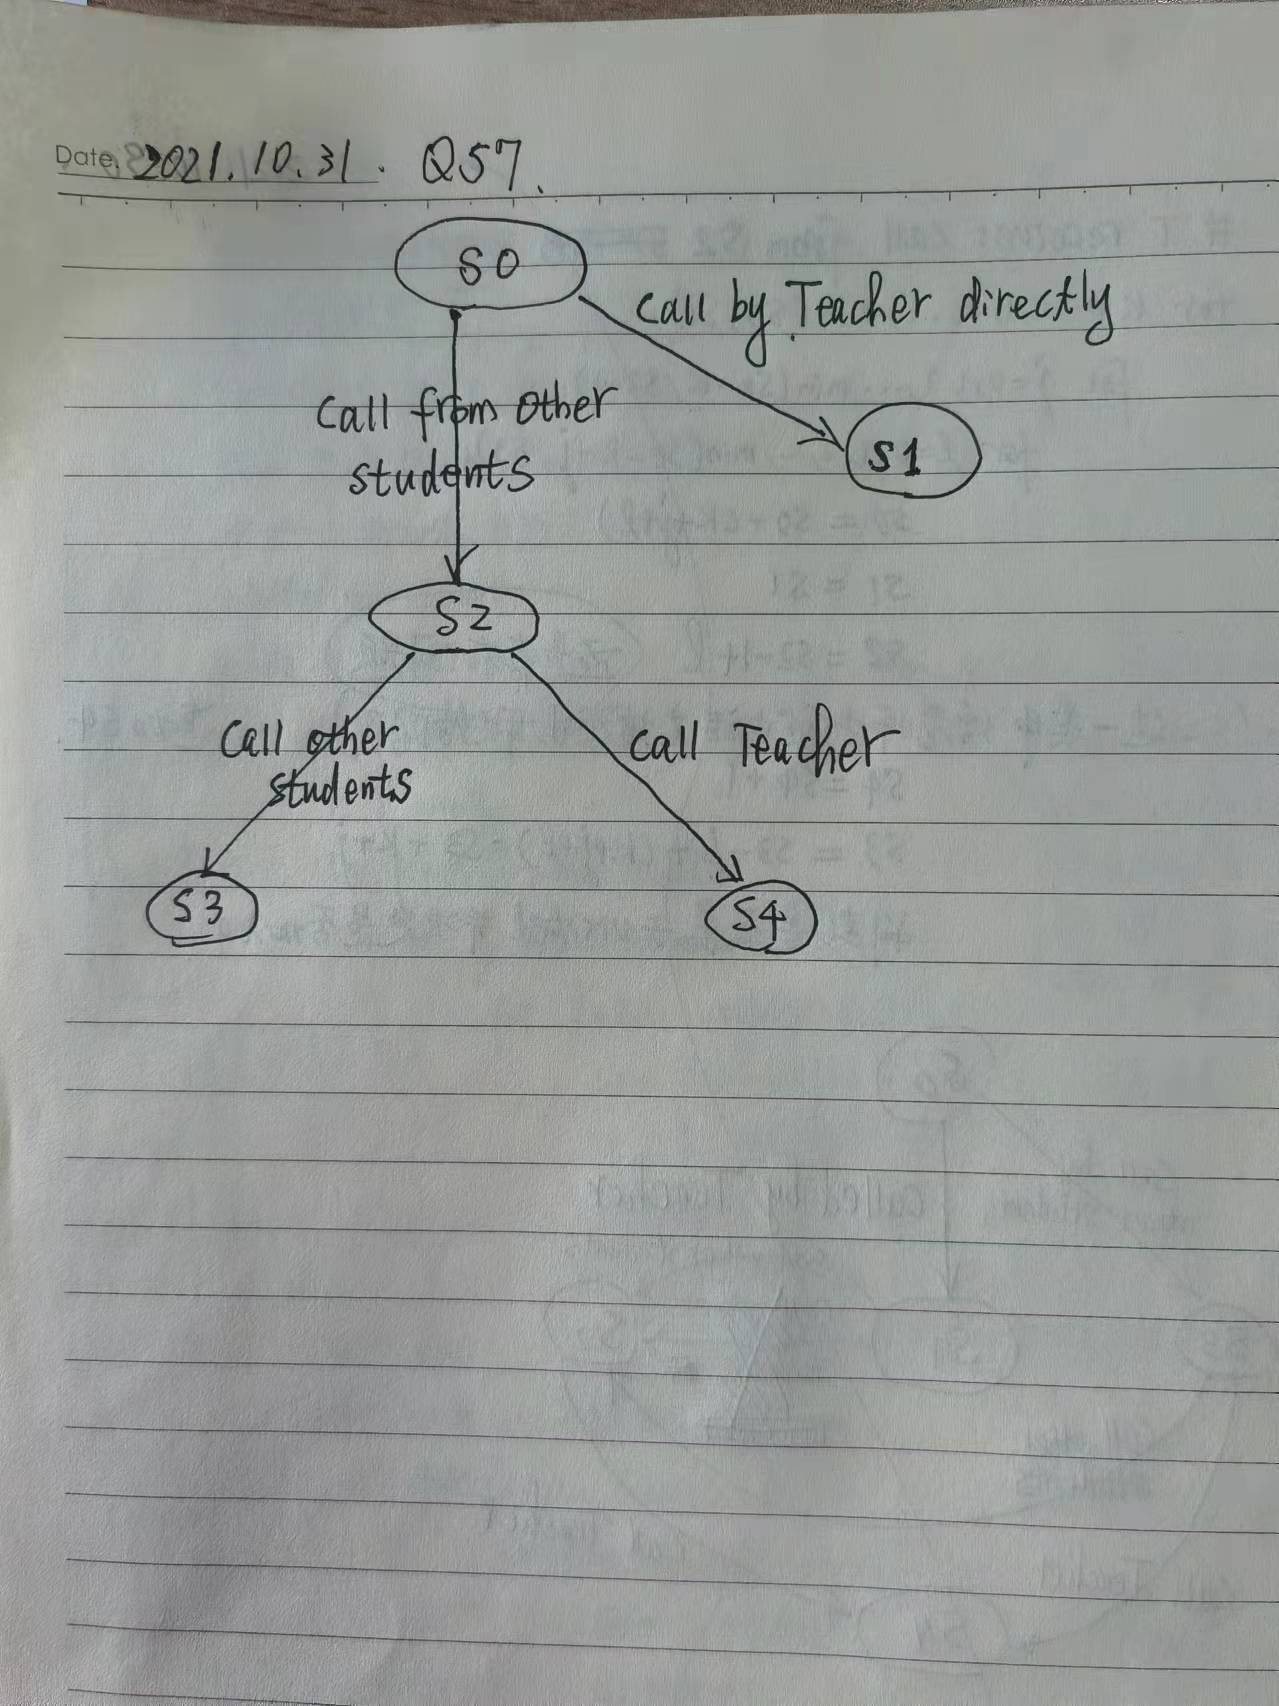 Date. 2021.10.31. Q57.
S0
Call by Teacher directly
Call from other
students
S1
S2
Call other
students
Call Teacher
S3
S4